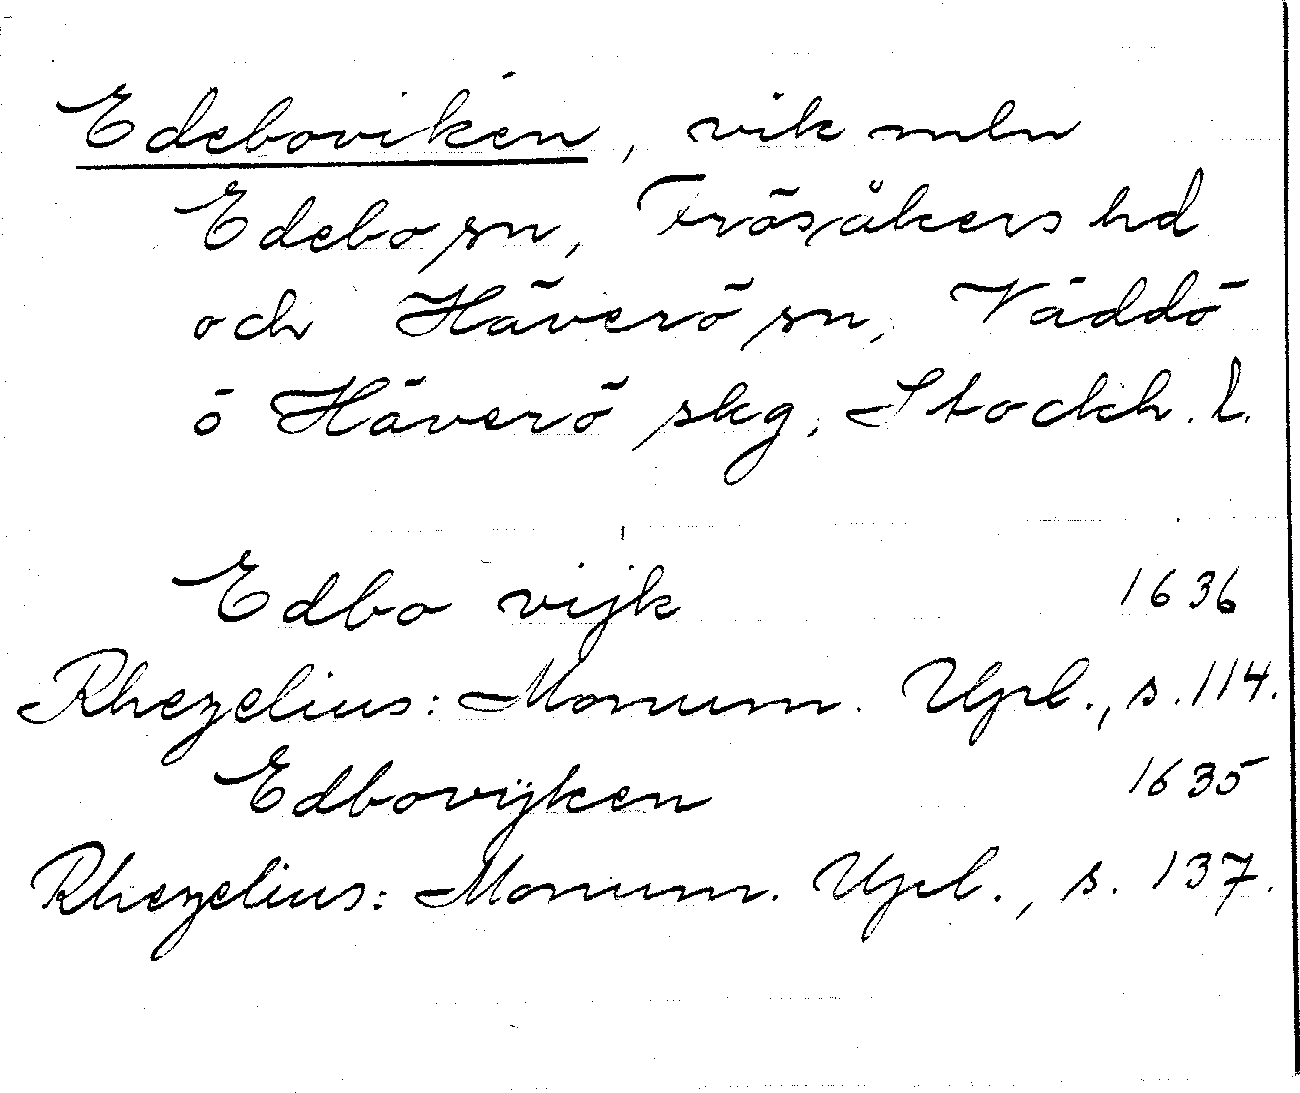 Edeboviken, vik mln
Edebo sn, Frösåkers hd
och Häverö sn, Väddö
o Häverö skg, Stockh. l.
Edbo vijk 1636
Rhezelius: Monum. Upl., s. 114.
Edbovijken 1635
Rhezelius: Monum. Upl., s. 137.